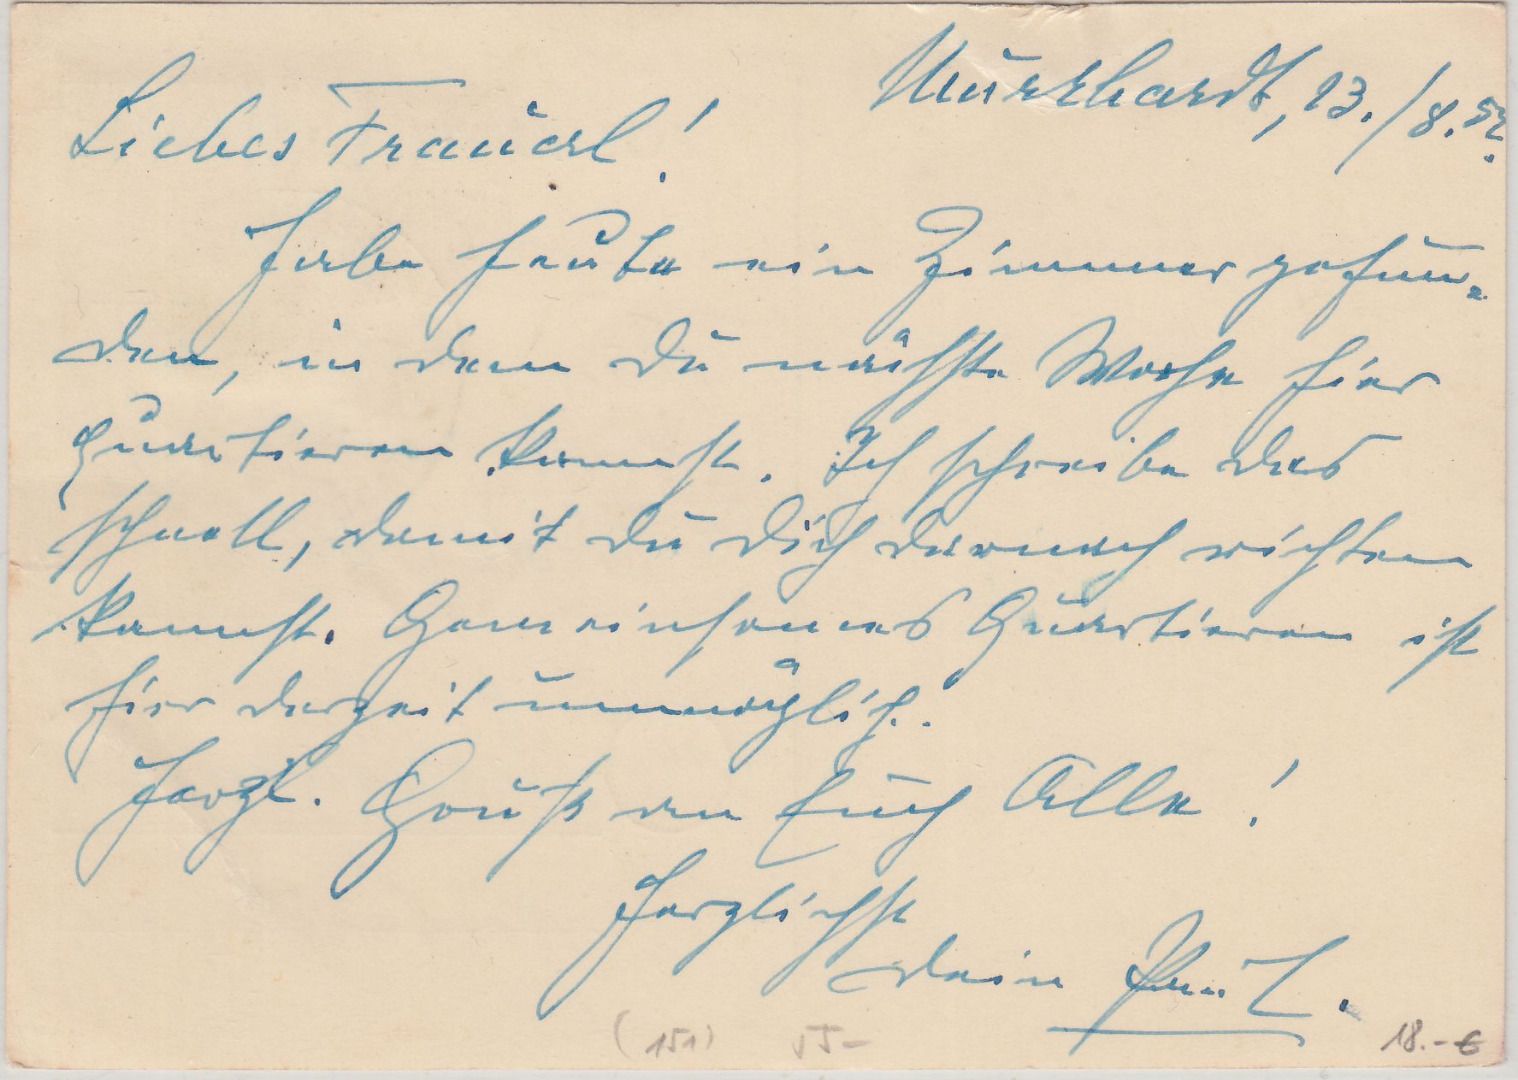 Murrhardt, 23./8. 52.
Liebes Frauerl!
Habe heute ein Zimmer gefun-
den, in dem Du nächste Woche hier
Quartieren kannst. Ich schreibe das
schnell, damit Du Dich darnach richten
kannst. Gemeinsames Quartieren ist
hier derzeit unmöglich.
Herzl. Gruß an Euch Alle!
Herzlichst
Dein Paul.
(151) 15-
18.-€